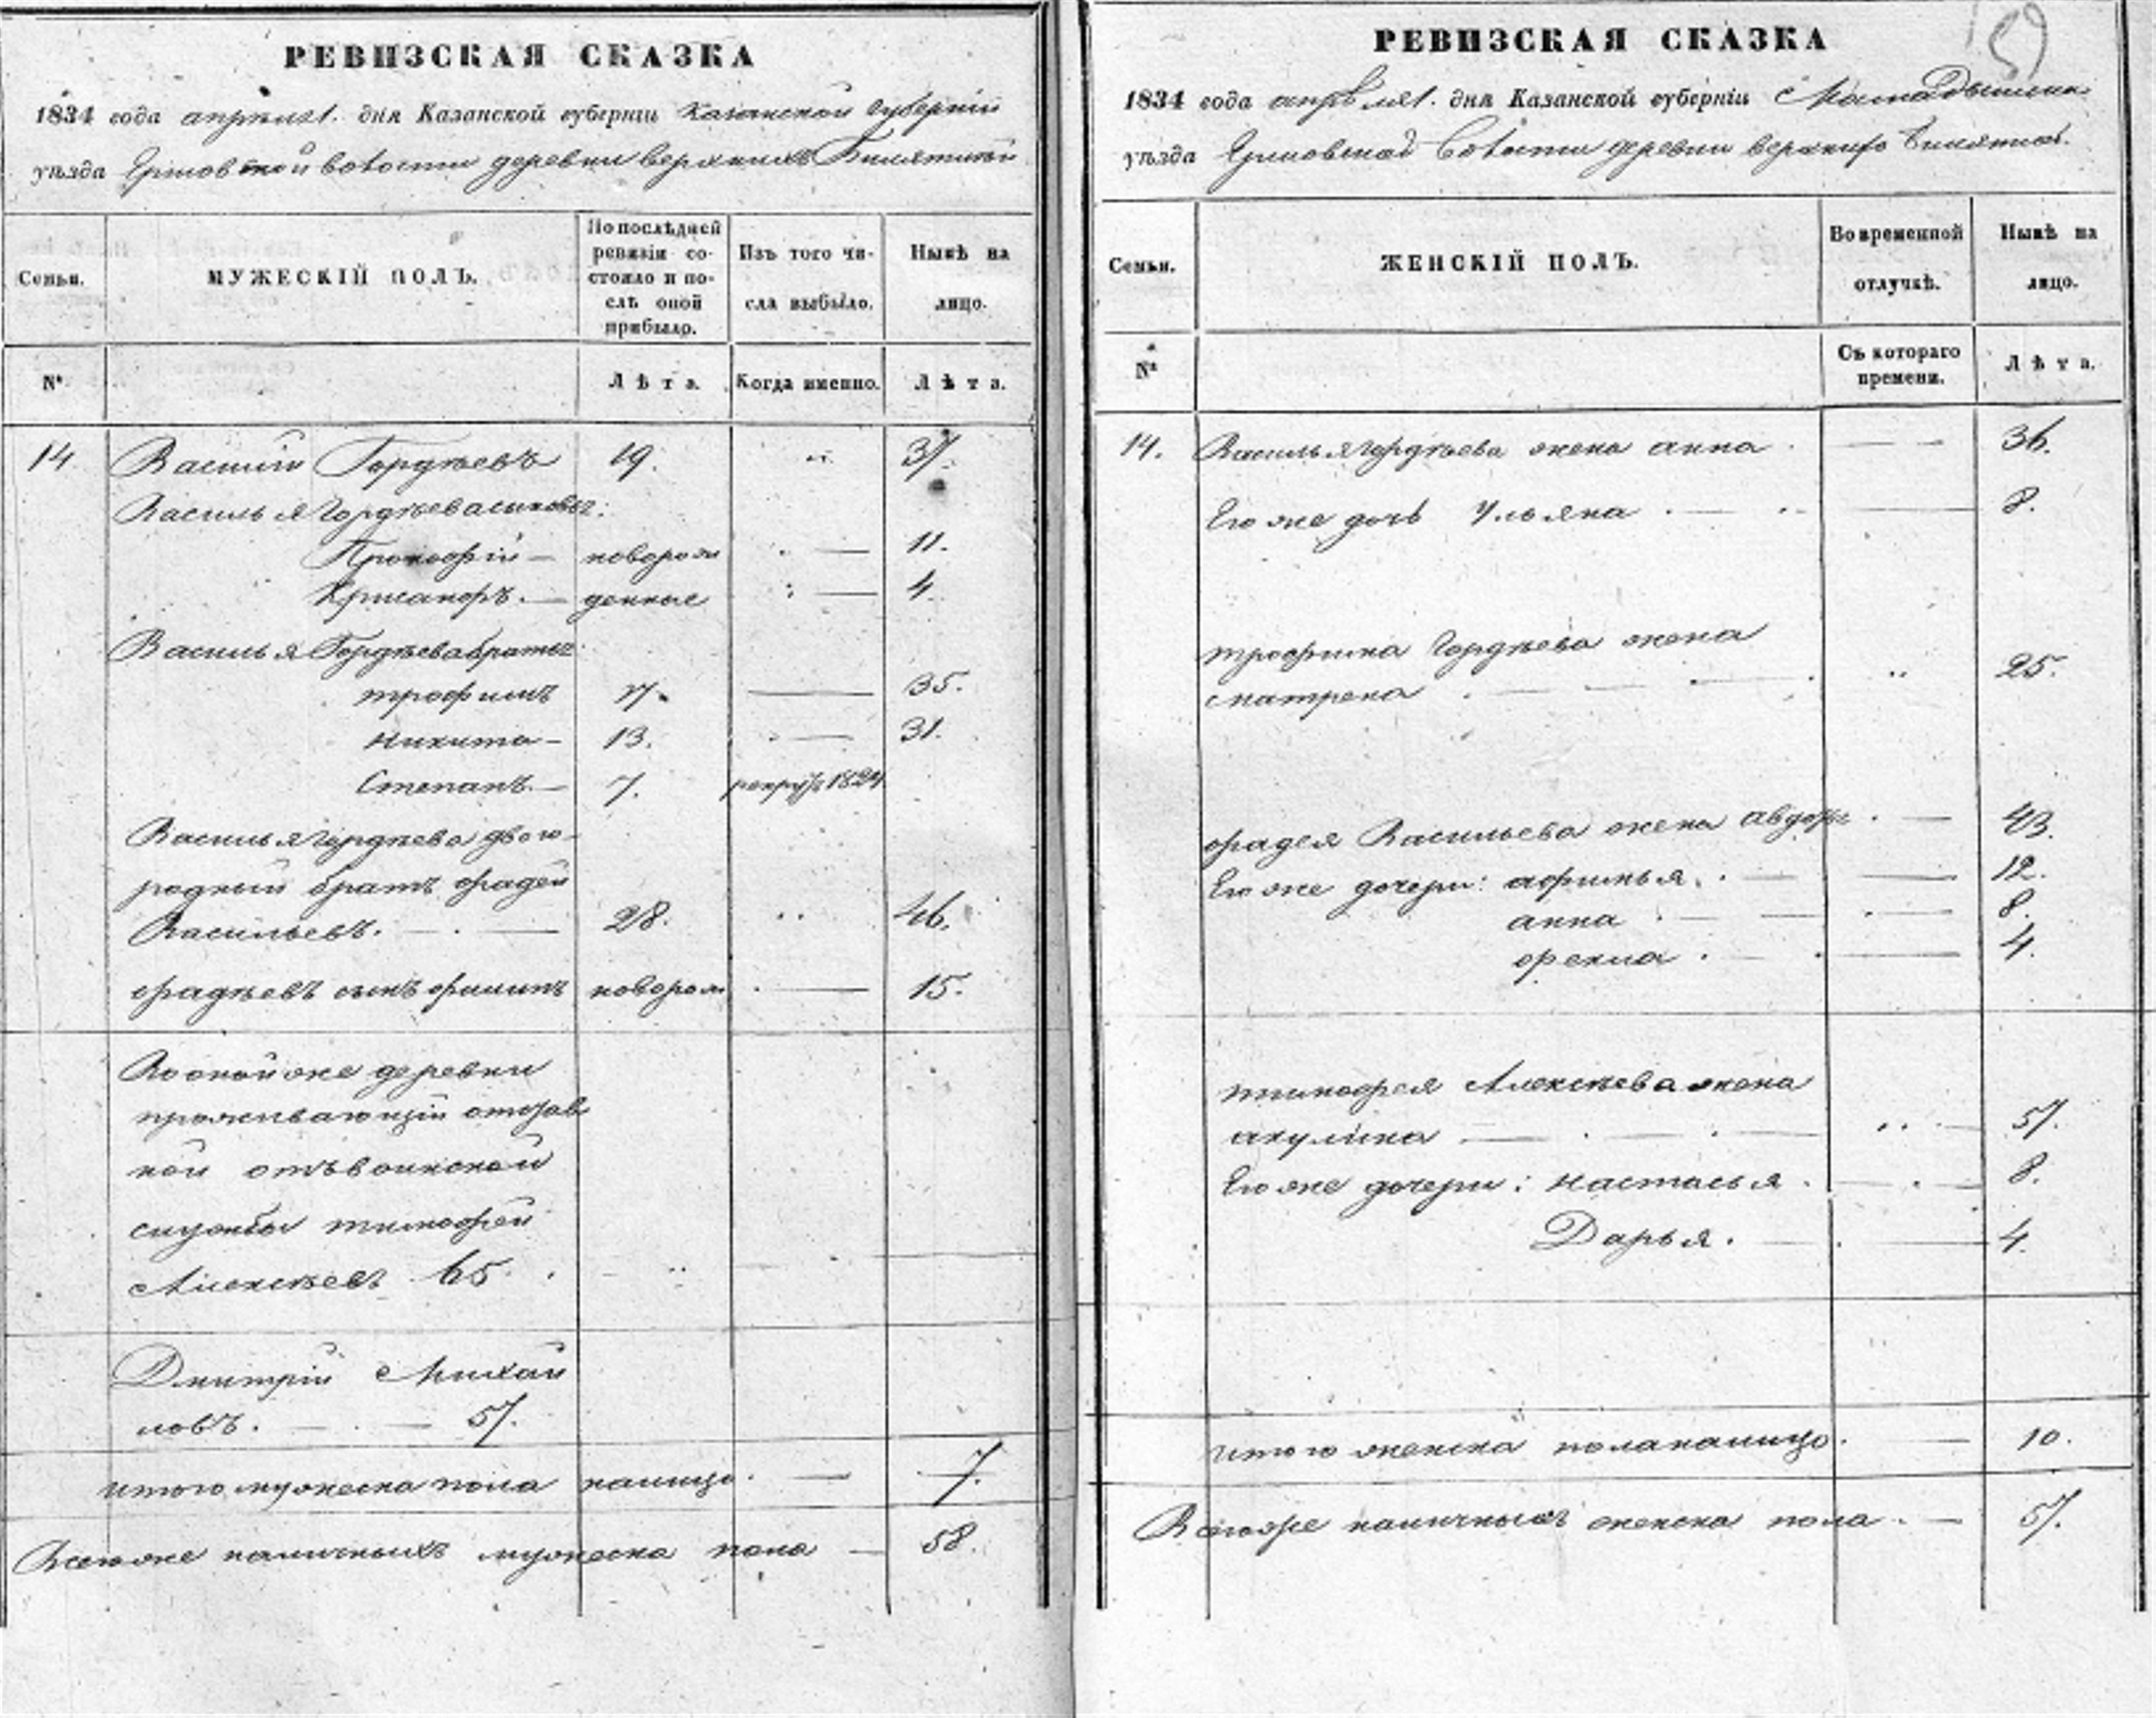 РЕВИЗСКАЯ СКАЗКА
1834 года апреля 1. дня Казанской губерніи Казанской губерніи
уѣзда Ершовской волости деревни верхнихъ
Семьи.
МУЖЕСКІЙ ПОЛЪ.
По послѣдней ревизіи состояло и послѣ оной прибыло.
Изъ того числа выбыло.
Нынѣ на лицо.
№
Лѣта.
Когда именно.
Лѣта.
14 Василий Гордѣевъ 19. 37.
Василья Гордѣева сыновья:
Прокофій — новорож — 11.
Крисанфъ. — денные — 4.
Василья Гордѣева братья
трофимъ 17. — 35.
Никита — 13. — 31.
Степанъ — 7. рекру 1824
Василья Гордѣева двою-
родный братъ фадей
Васильевъ. — 28. 46.
фадѣевъ сынъ филипъ новорож — 15.
Во оной же деревни
проживающій отстав
ной отъ воинской
службы тимофей
Алексѣевъ 65.
Дмитрій Михай
ловъ. — 57.
итого мужеска пола налицо. — 7.
Всего же наличныхъ мужеска пола — 58.
РЕВИЗСКАЯ СКАЗКА
1834 года апреля 1. дня Казанской губерніи Мамадышска
уѣзда Ершовской волости деревни верхнихъ
Семьи.
ЖЕНСКІЙ ПОЛЪ.
Во временной отлучкѣ.
Нынѣ на лицо.
№
Съ котораго времени.
Лѣта.
14. Василья Гордѣева жена анна — 36.
Его же дочь Ульяна — 8.
трофима Гордѣева жена
матрена — 25.
фадея Васильева жена авдотья — 43.
Его же дочери: афимья. — 12.
анна — 8.
фекла — 4.
тимофея Алексѣева жена
акулина — 57.
Его же дочери: настасья. — 8.
Дарья. — 4.
итого женска пола налицо. — 10.
Всего же наличныхъ женска пола. — 57.